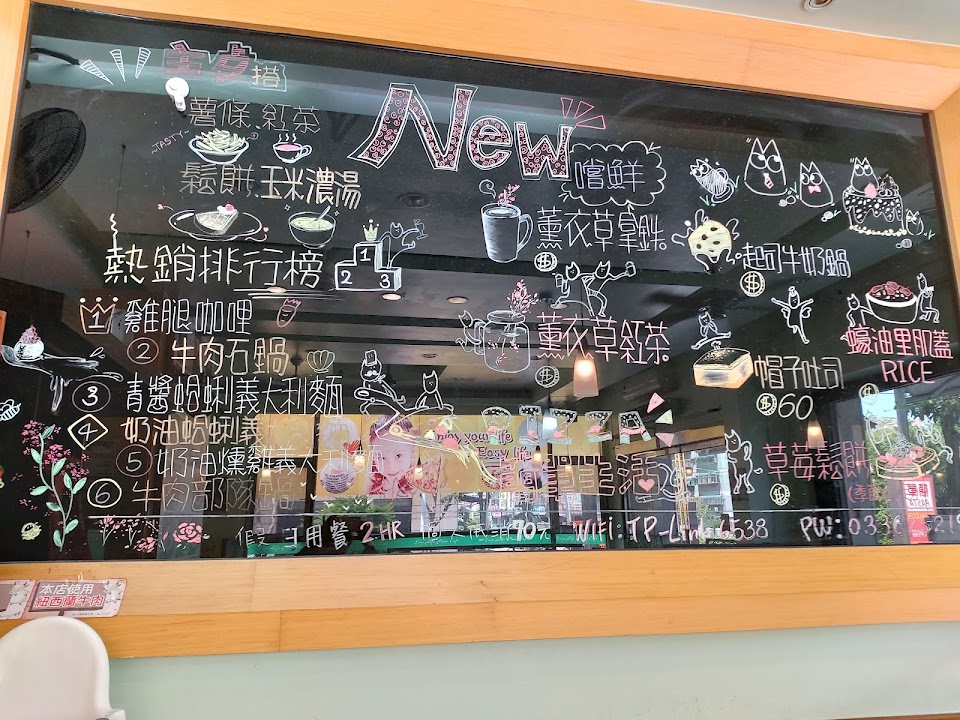 搭
薯條 紅茶
TASTY~
鬆餅 玉米濃湯
New
嚐鮮
熱銷排行榜
1 2 3
1 雞腿咖哩
② 牛肉石鍋
③ 青醬蛤蜊義大利麵
4 奶油蛤蜊義
⑤ 奶油燻雞義大利
⑥ 牛肉部隊鍋
薰衣草拿鉄
$
薰衣草紅茶
$
起司牛奶鍋
$
帽子吐司
$60
蠔油里肌蓋
RICE
草莓鬆餅
$
PIZZA
enjoy your life
Easy life
生活
假日用餐 2HR 低消70元 WIFI: TP-Link 6538 PW:
本店使用
紐西蘭牛肉